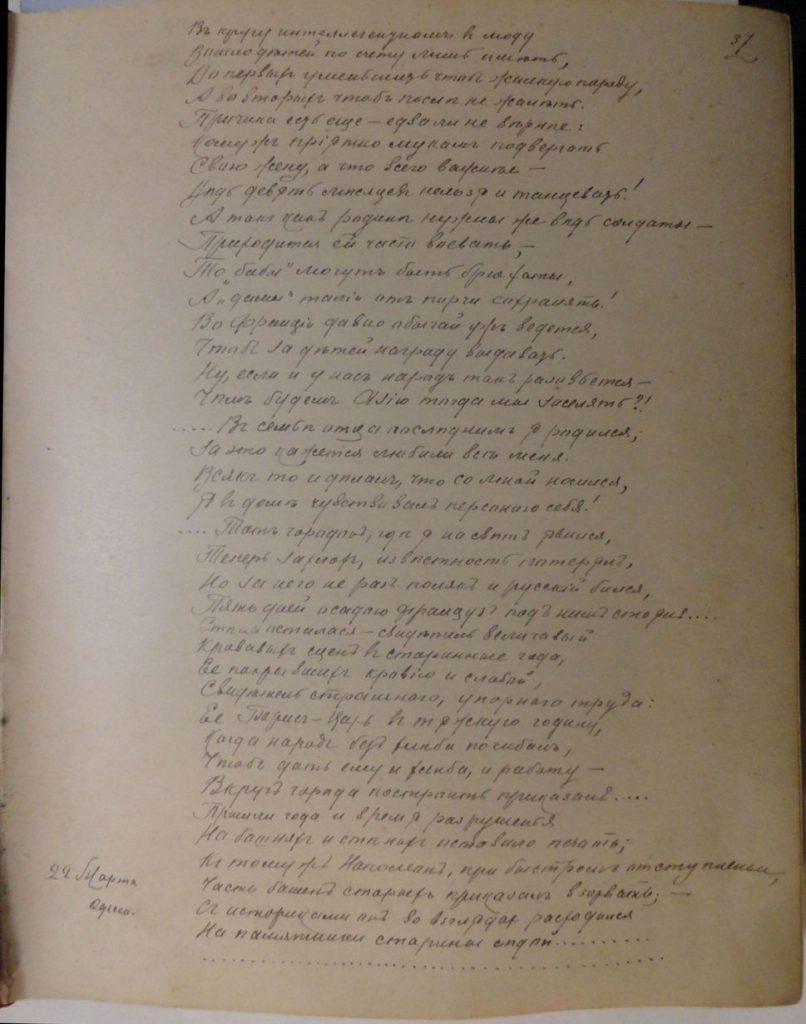 37
Въ кругу интеллегенціономъ въ моду
Вошло дѣтей по счету лишь имѣть,
Во первыхъ уменьшить чтобъ женскую породу,
А во вторыхъ чтобъ послѣ не жалѣть.
Причина есть еще – едва ли не вѣрнѣе:
Кому жъ пріятно мукамъ подвергать
Свою жену, а что всего важнѣе –
Вѣдь девять мѣсяцевъ нельзя и танцевать!
А такъ какъ родинѣ нужны же вѣдь солдаты –
Приходится ей часто воевать, –
То „бабы" могутъ быть брюхаты,
А „дамы" талію отъ порчи сохранять!
Во Франціи давно обычай ужъ ведется,
Чтобъ за дѣтей награду выдавать.
Ну, если и у насъ народъ такъ разовьется –
Чѣмъ будемъ Азію тогда мы заселять?!
..... Въ семьѣ отца послѣднимъ я родился;
За это кажется любили всѣ меня.
Всякъ то и дѣлалъ, что со мной носился,
Я въ домѣ чувствовалъ персоною себя!
.... Тотъ городокъ, гдѣ я на свѣтъ явился,
Теперь захлохъ, извѣстность потерялъ,
Но за него не разъ полякъ и русскій бился,
Пять дней осадою французъ подъ нимъ стоялъ....
Стѣна осталася – свидѣтель величавый
Кровавыхъ сценъ въ старинные года,
Ее покрывшихъ кровію и славой,
Свидѣтель страшнаго, упорнаго труда:
Ее Борисъ – Царь въ тяжкую годину,
Когда народъ безъ хлѣба погибалъ,
Чтобъ дать ему и хлѣба, и работу –
Вкругъ города построить приказалъ....
Прошли года и время разрушенья
На башняхъ и стѣнахъ оставило печать;
Къ тому жъ Наполеонъ, при быстромъ отступленьи,
Часть башенъ старыхъ приказалъ взорвать; –
Съ историками онъ во взглядахъ расходился
На памятники старины сѣдой..........
22 Марта
Одесса.